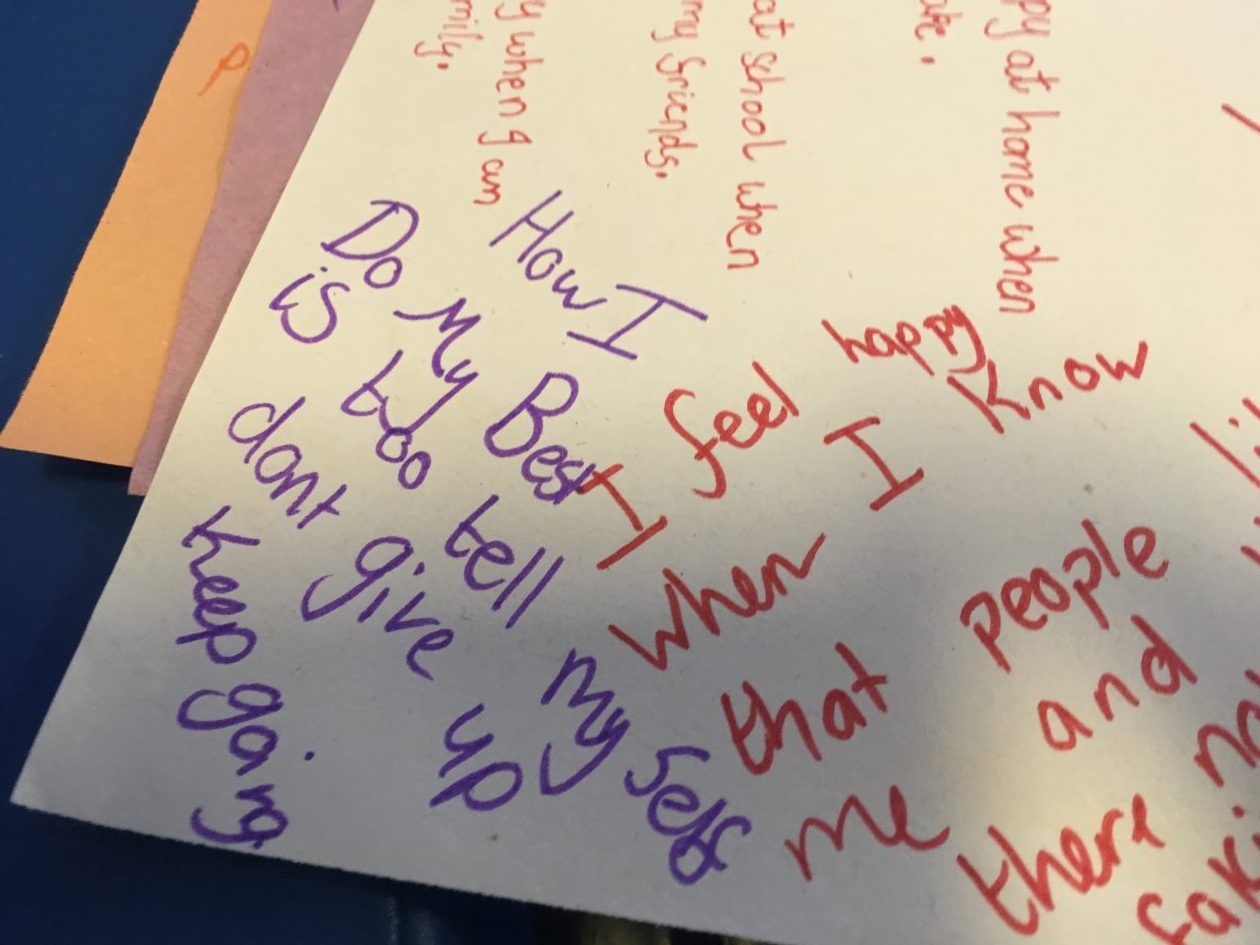 py at home when
at school when
my friends.
y when I am
mily.
How I
Do My Best
is too tell my self
dont give up
keep going
I feel happy
when I know
that people li
me and
there no
fakin
P